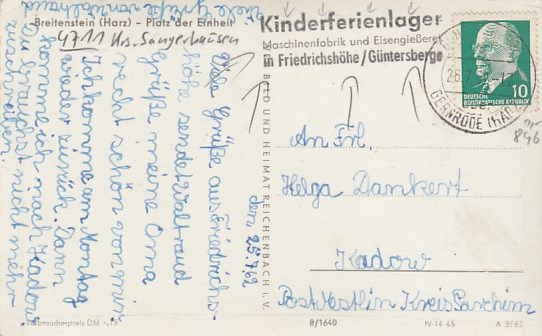 Breitenstein (Harz) - Platz der Einheit
4711 Krs. Sangerhausen
Kinderferienlager
Maschinenfabrik und Eisengießerei
in Friedrichshöhe/Güntersberge
GERNRODE (HARZ)
10
DEUTSCHE
DEMOKRATISCHE REPUBLIK
846
den, 25.7.62
Viele Grüße aus Friedrichs-
höhe sendet Waltraud
Grüße meine Oma
recht schön von mir
Ich komme am Montag
wieder zurück. Dann
komme ich nach Kadow
Du brauchst nicht mehr
zuschreiben.
Viele Grüße von Waltraud
BILD UND HEIMAT REICHENBACH I. V.
An Frl.
Helga Dankert
Kadow
Post Vestlin Kreis Parchim
Verbraucherpreis DM -,15
8/1640
IV-14-45
A 3/62